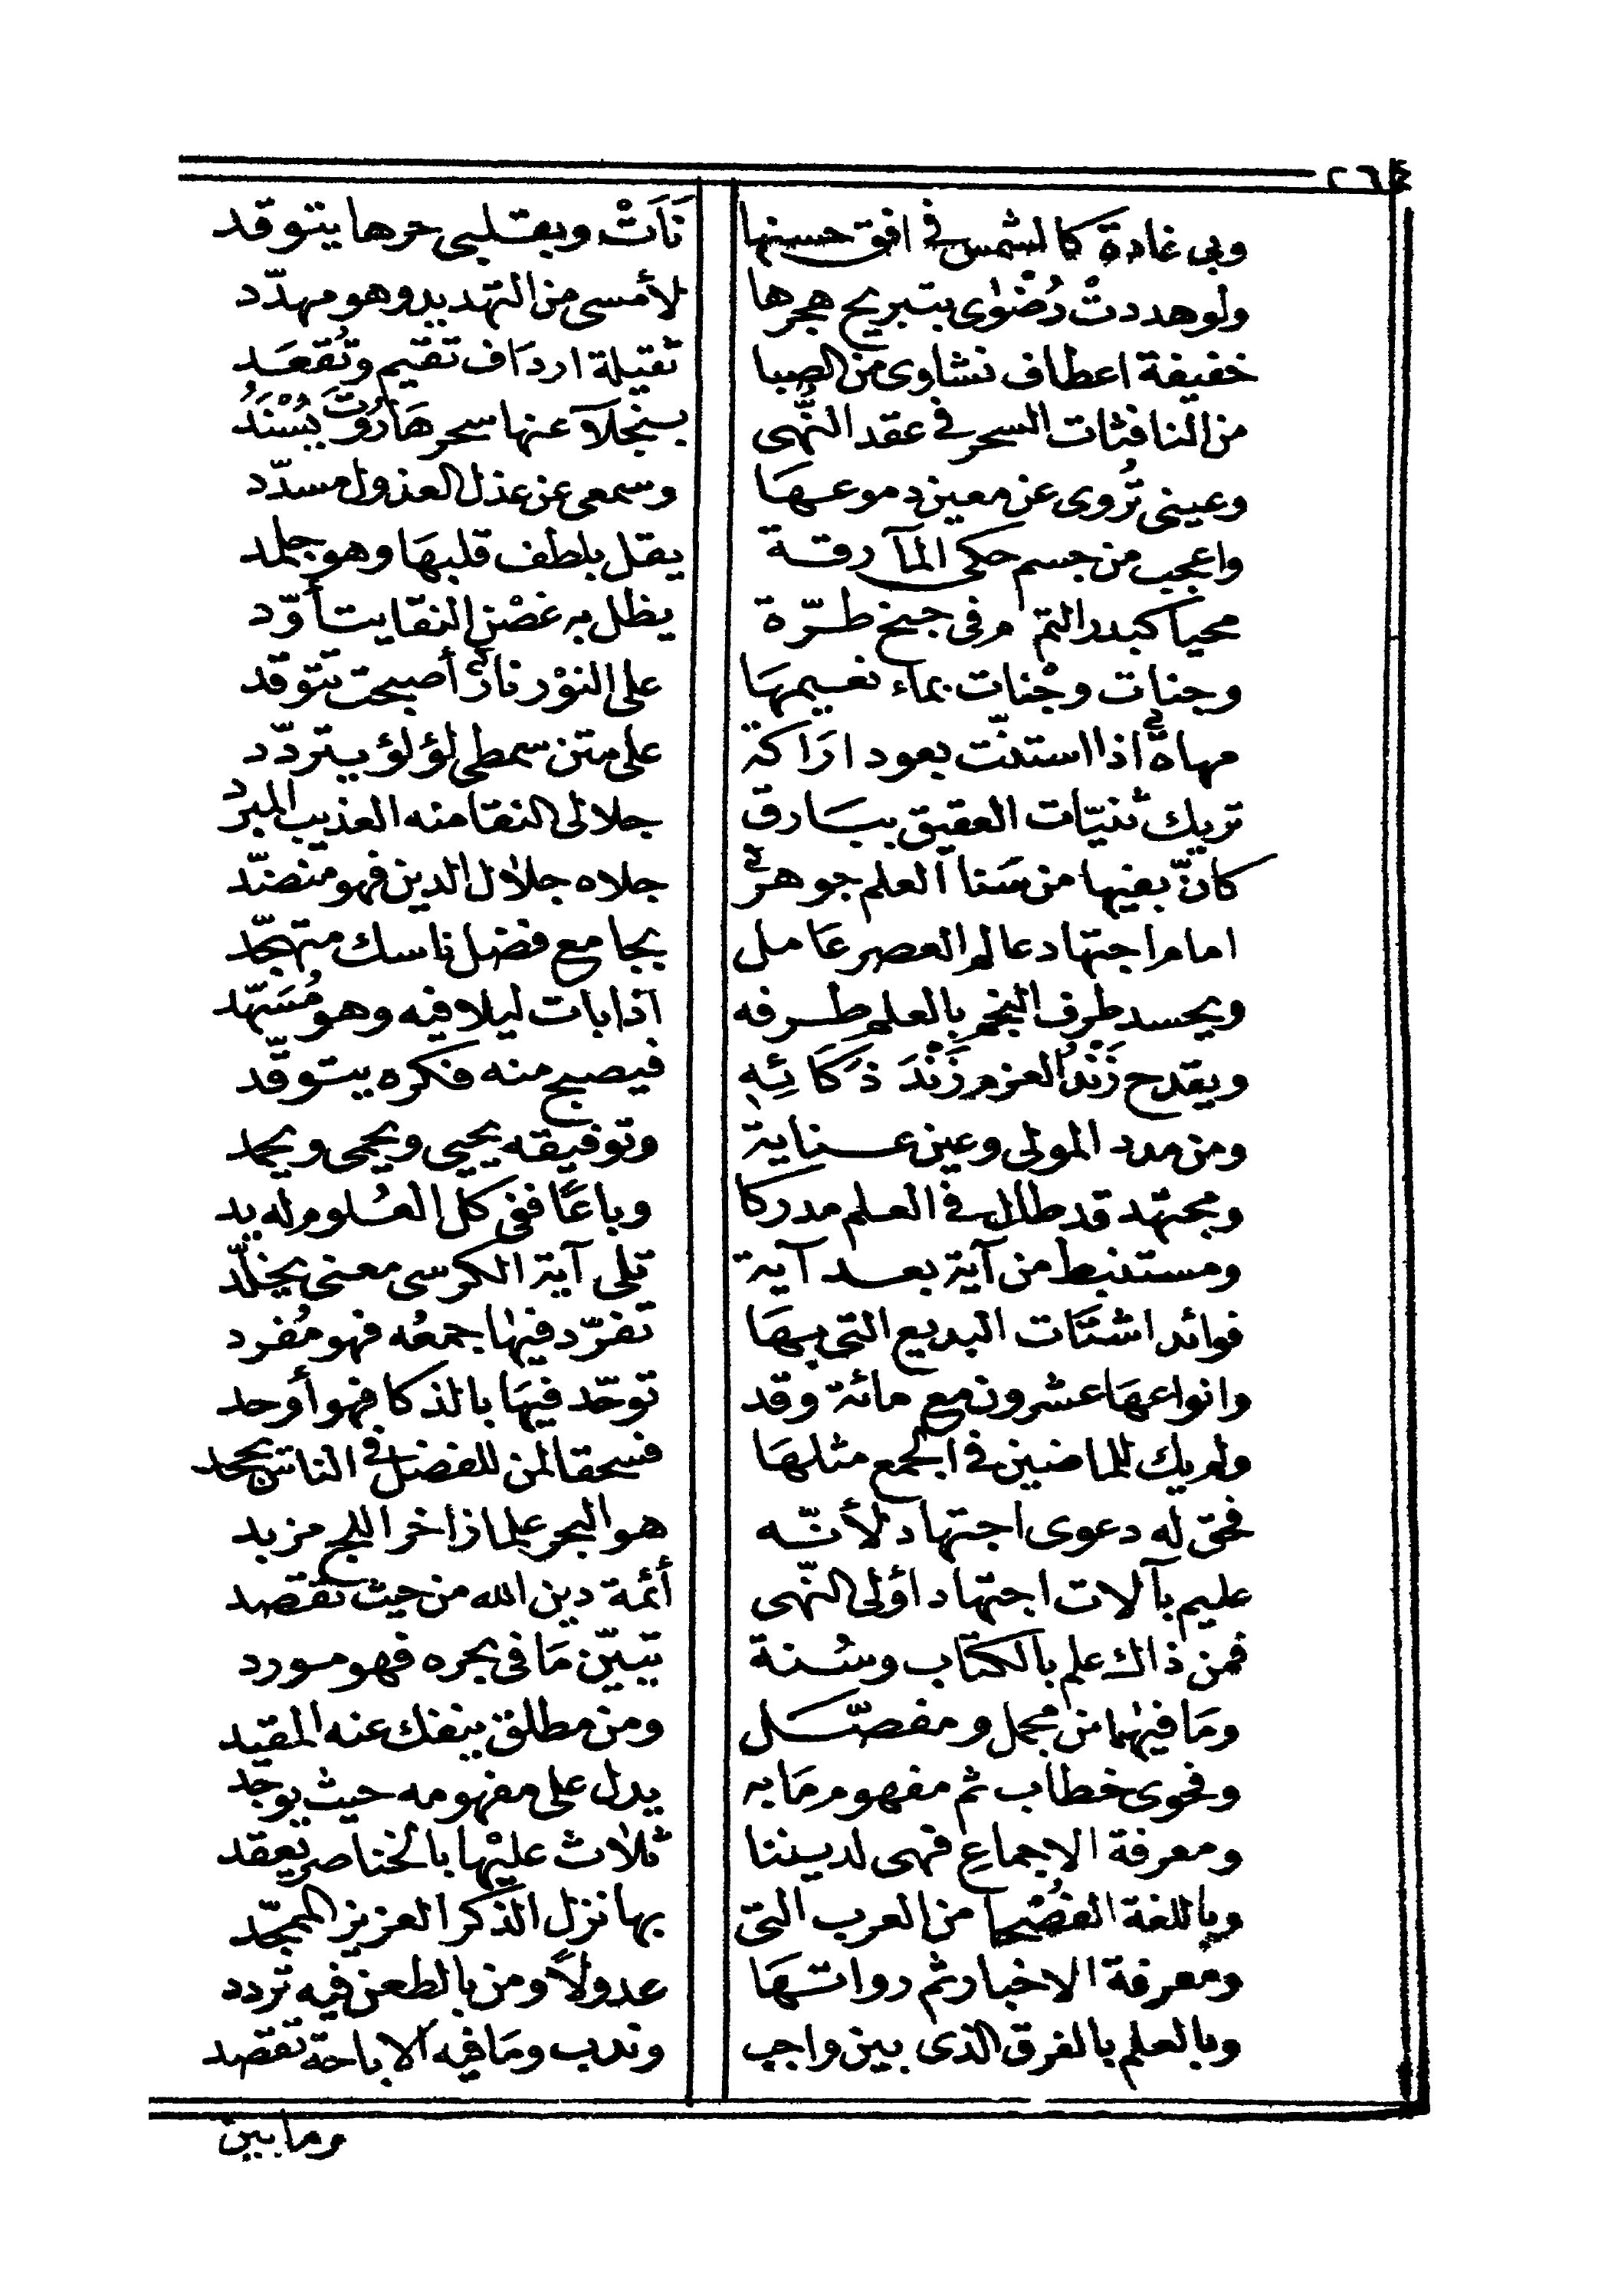 ٢٦٤
وبي غادة كالشمس في افق حسنها نَاَتْ وبقلبي حرها يتوقد
ولو هددتْ رُضْوٰى بتبريح هجرها لأمسى من التهديد وهو مهدّد
خفيفة اعطاف نشاوى من الصبا ثقيلة ارداف تقيم وتُقعَد
من النافثات السحر في عقد النُّهى بنجلآ عنها سحر هَارُوتَ يُسْنَدُ
وعيني تُروى عن معين دموعهَا وسمعي عن عذل العذول مسدّد
واعجب من جسم حكى المآ رقة يقل بلطف قلبهَا وهو جلمد
محيا كبدر التم في جنح طرّة يظل به غصْن النقا يتأوّد
وجنات وجْنات بماء نعيمهَا على النوْر نارٌ أصبحت تتوقد
مهاةٌ اذا استنّت بعود ارَاكة على متن سمطي لؤلؤ يتردّد
تريك ثنيّات العقيق ببَارق جلا لى النقا منه العذيب المبرد
كانّ بفيها من سَنا العلم جوهرٌ جلاه جلال الدين فهو منضّد
امام اجتهاد عالم العصر عَامل بجامع فضل ناسك متهجّد
ويحسد طرف النجم بالعلم طرفه اذا بات ليلا فيه وهو مُسَهّد
ويقدح زَنْدُ العزم زَنْدَ ذَكَائِهِ فيصبح منه فكره يتوقّد
ومن مدد المولى وعين عناية وتوفيقه يحيى ويحمى ويحمد
ومجتهد قد طال في العلم مدركا وباعًا ففي كل العُلوم له يد
ومستنبط من آية بعد آية تلى آية الكرسى معنى يخلّد
فوائد اشتَات البديع التى بهَا تفرّد فيها جمعُه فهو مُفرد
وانواعهَا عشرون مع مائة وقد توحّد فيهَا بالذكا فهو أوحد
ولم يك للماضين في الجمع مثلهَا فسحقا لمن للفضل في الناس يجحد
فحق له دعوى اجتهاد لأنّه هو البحر علما زاخر اللج مزبد
عليم بآلات اجتهاد اؤلى النّهى أئمة دين الله من حيث تقصد
فمن ذاك علم بالكتاب وسُنة تبيّن مَا في بحره فهو مورد
ومَا فيهما من مجمل ومفصّل ومن مطلق ينفك عنه المقيد
وفحوى خطاب ثم مفهوم مَا به يدل على مفهومه حيث يوجد
ومعرفة الاجماع فهى لديننا ثلاث عليْها بالخناصر يعقد
وباللغة الفصْحا من العرب التى بها نزل الذكر العزيز الممجّد
ومعرفة الاخبار ثم رواتهَا عدولاً ومن بالطعن فيه تردد
وبالعلم بالفرق الذى بين واجب وندب ومَا فيه الاباحة تقصد
وما بين